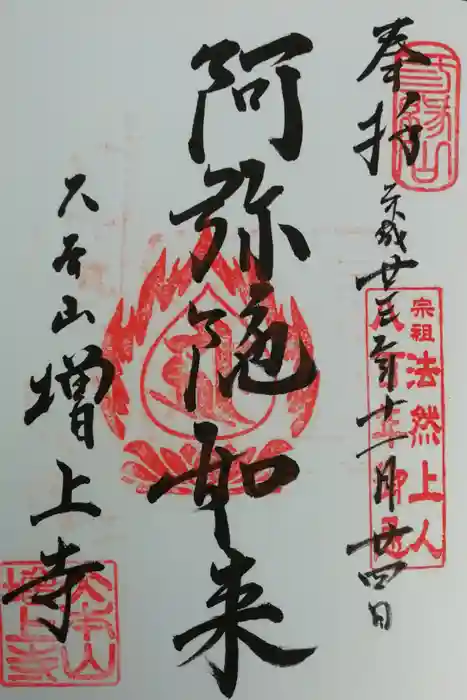 奉拝
平成廿三年十一月廿四日
阿弥陀如来
大本山増上寺
三縁山
宗祖法然上人
大本山
増上寺